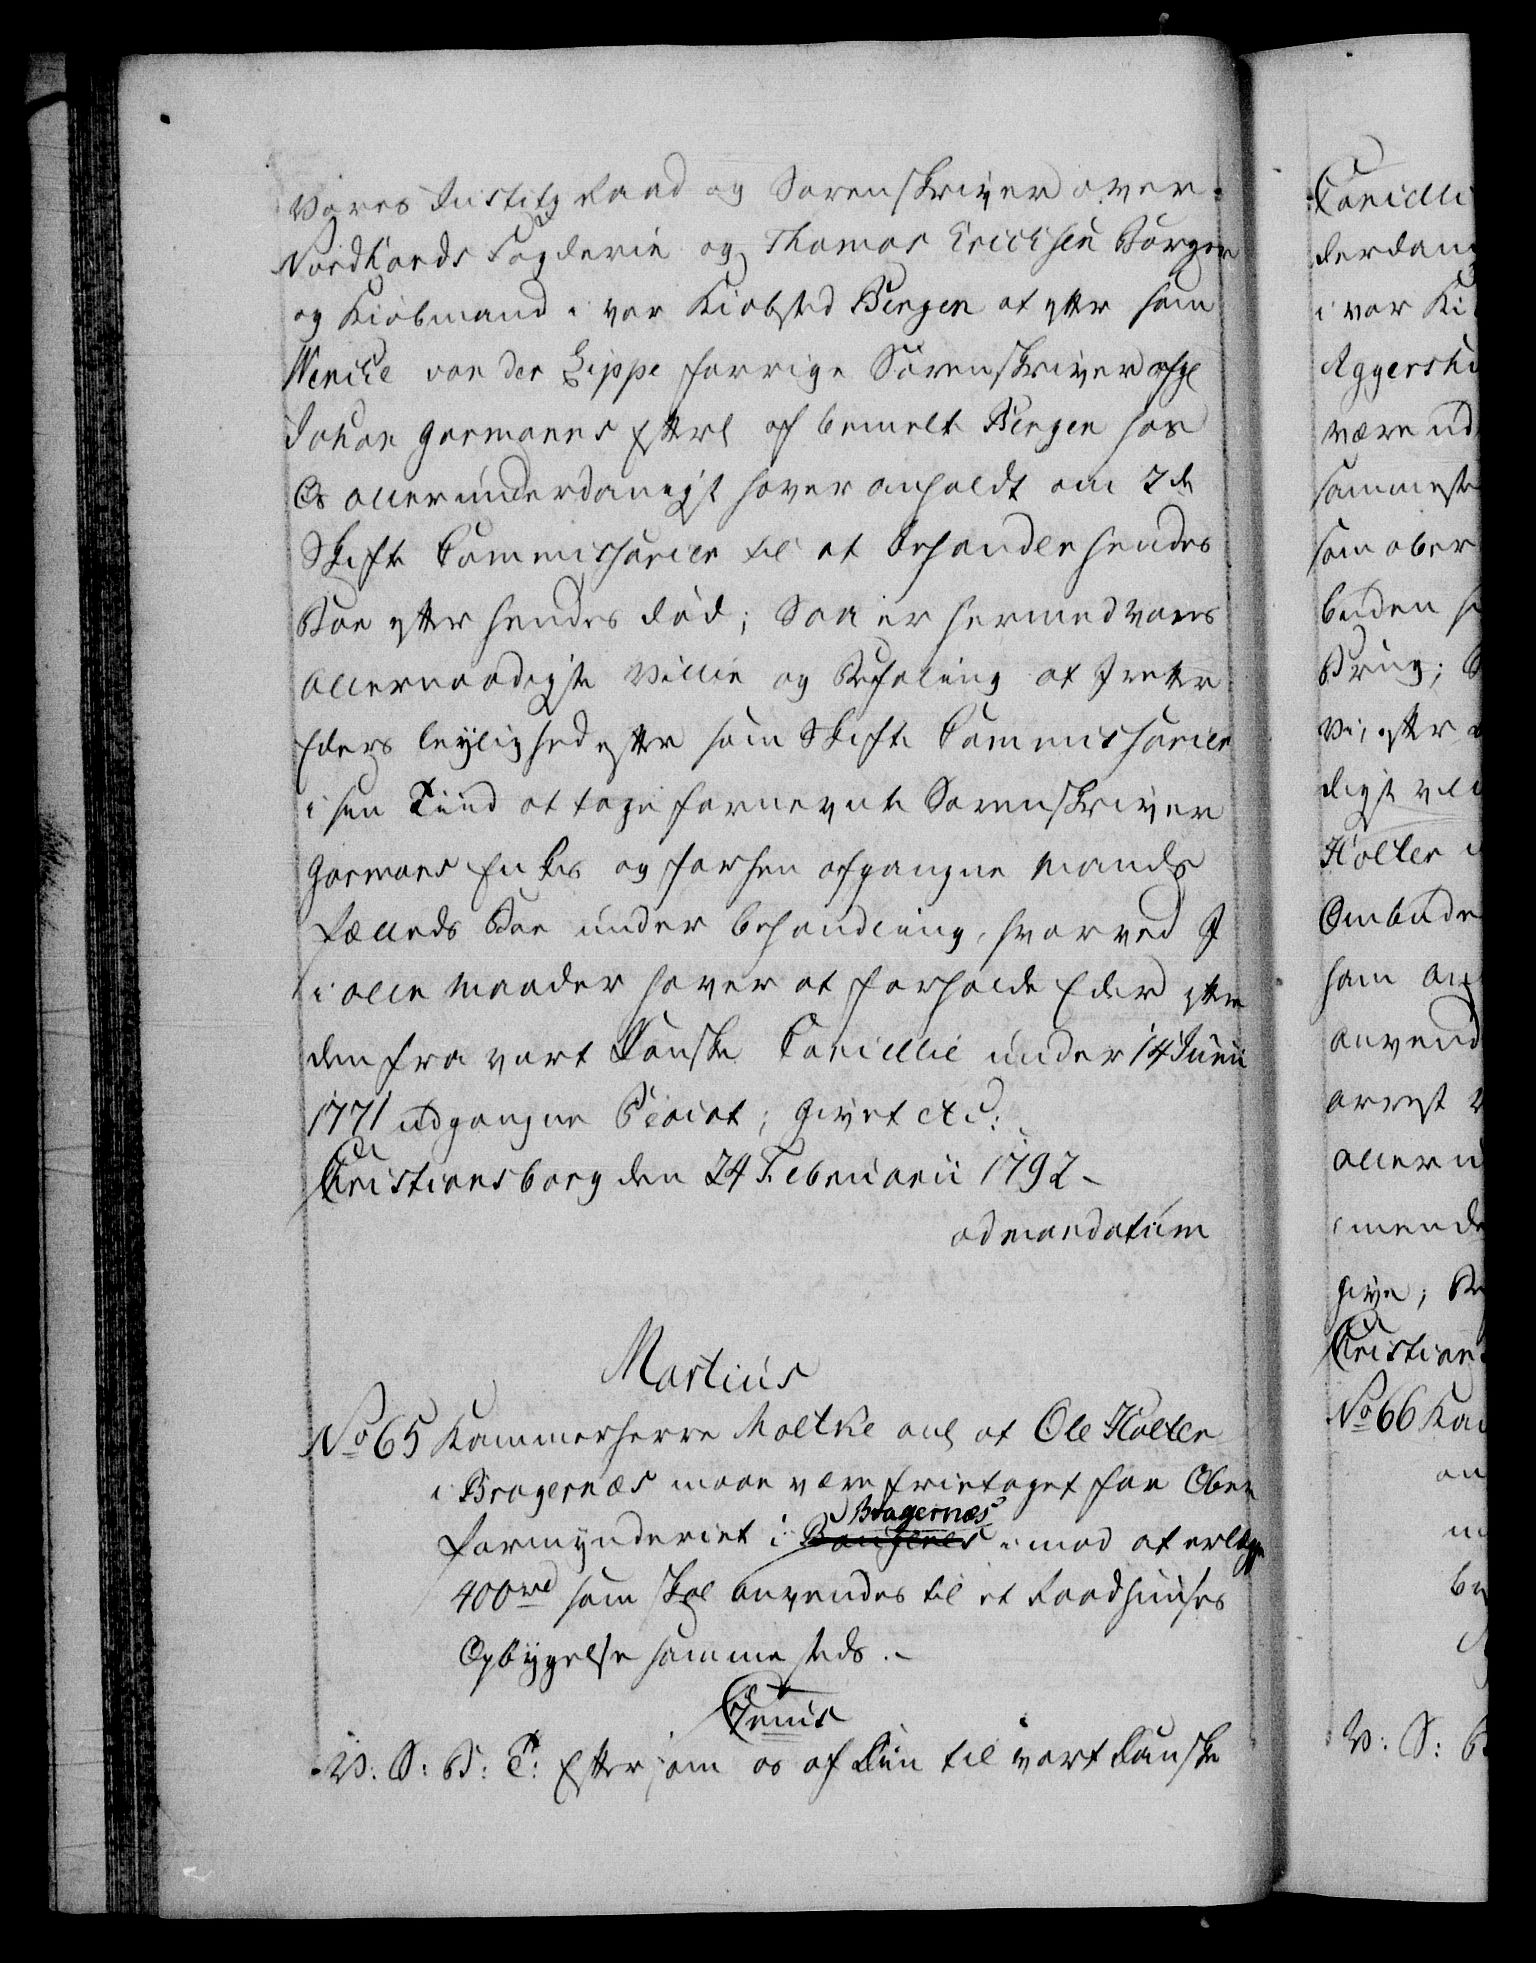 Vores Justitz Raad og Sorenskriver over
Nordhords Fogderie og Thomas Erichsen Borger
og Kiøbmand i vor Kiøbsted Bergen at efter som
Wencke von der Lippe forrige Sorenskriver afg
Johan Garmanns Efterl af bemelte Bergen hos
Os allerunderdanigst haver anholdt om 2de
Skifte Commissarier til at behandle hendes
Boe efter hendes død; Saa er hermed vores
allernaadigste Villie og Befaling at I rette
Eders leylighed efter som Skifte Commissarier
i sin Tiid at tage fornevnte Sorenskriver
Garmans Enkes og forhen afgangne Mands
Fælleds Boe under behandling, hvorved I
i alle Maader haver at forholde Eder efter
den fra vort Danske Cancellie under 14 Junii
1771 udgangne Placat; Givet etc:
Christiansborg den 24 Februarii 1792 -
ad mandatum
Martius
No 65 Kammerherre Moltke anl at Ole Holter
i Bragernæs maae være frietaget for Ober
formynderiet i Bragernæs imod at erlegge
400rd som skal anvendes til et Raadhuuses
Opbygelse sammesteds. -
Genis
V. S: B: T: Eftersom os af Din til vort Danske
Cancelli
derdan
i vor Ki
Aggershu
være ud
sammeste
som ober
buden
Brug;
Vi, efter
digst vil
Holter
Ombude
ham
anvend
arrest
alleru
mende
give;
Christian
No 66 Ka
V: S: B